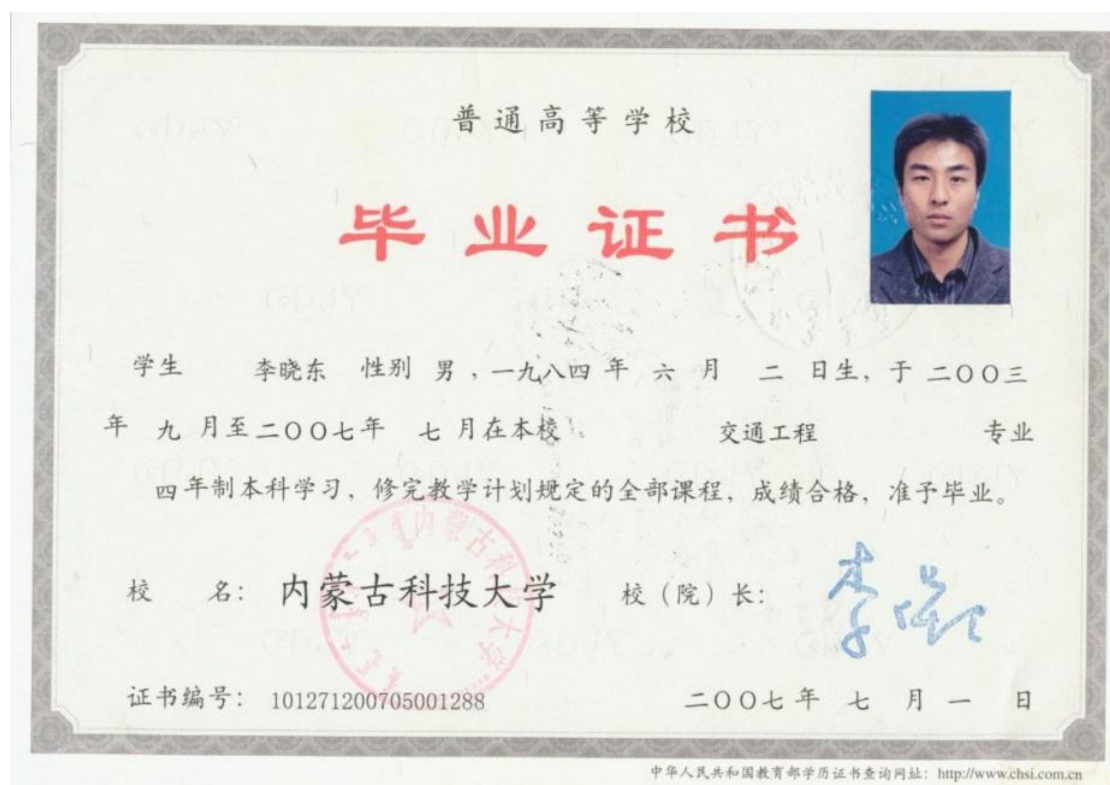 普通高等学校
毕业证书
学生 李晓东 性别 男，一九八四 年 六 月 二 日生，于 二〇〇三
年 九 月至二〇〇七年 七 月在本校 交通工程 专业
四年制本科学习，修完教学计划规定的全部课程，成绩合格，准予毕业。
校 名：内蒙古科技大学 校（院）长：
内蒙古科技大学
证书编号：101271200705001288 二〇〇七年 七 月 一 日
中华人民共和国教育部学历证书查询网址：http://www.chsi.com.cn